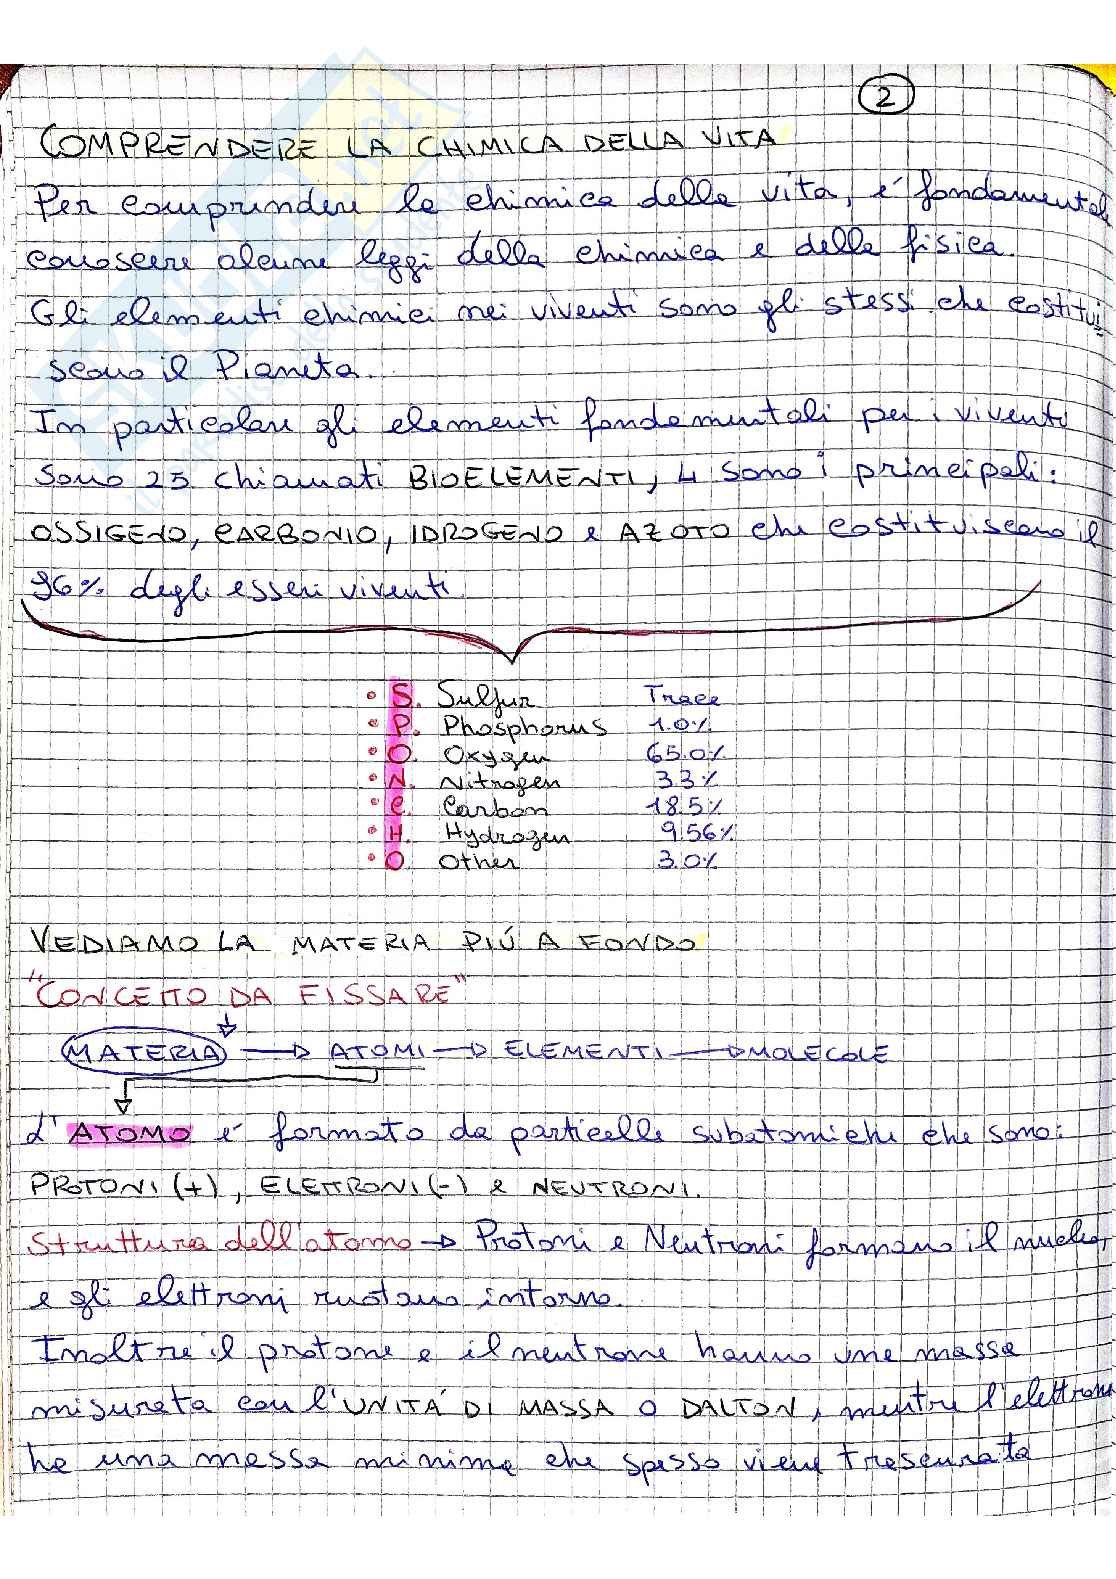 2
COMPRENDERE LA CHIMICA DELLA VITA
Per comprendere la chimica della vita, é fondamentale
conoscere alcune leggi della chimica e della fisica.
Gli elementi chimici nei viventi sono gli stessi che costitui
scono il Pianeta.
In particolare gli elementi fondamentali per i viventi
sono 25 chiamati BIOELEMENTI, 4 sono i principali:
OSSIGENO, CARBONIO, IDROGENO e AZOTO che costituiscono il
96% degli esseri viventi.
• S. Sulfur Trace
• P. Phosphorus 1.0%
• O. Oxygen 65.0%
• N. Nitrogen 3.3%
• C. Carbon 18.5%
• H. Hydrogen 9.56%
• O. Other 3.0%
VEDIAMO LA MATERIA PIÚ A FONDO
"CONCETTO DA FISSARE"
MATERIA → ATOMI → ELEMENTI → MOLECOLE
L'ATOMO é formato da particelle subatomiche che sono:
PROTONI (+), ELETTRONI (-) e NEUTRONI.
Struttura dell'atomo → Protoni e Neutroni formano il nucleo,
e gli elettroni ruotano intorno.
Inoltre il protone e il neutrone hanno une massa
misurata con l'UNITÁ DI MASSA O DALTON, mentre l'elettrone
ha una massa minima che spesso viene trascurata